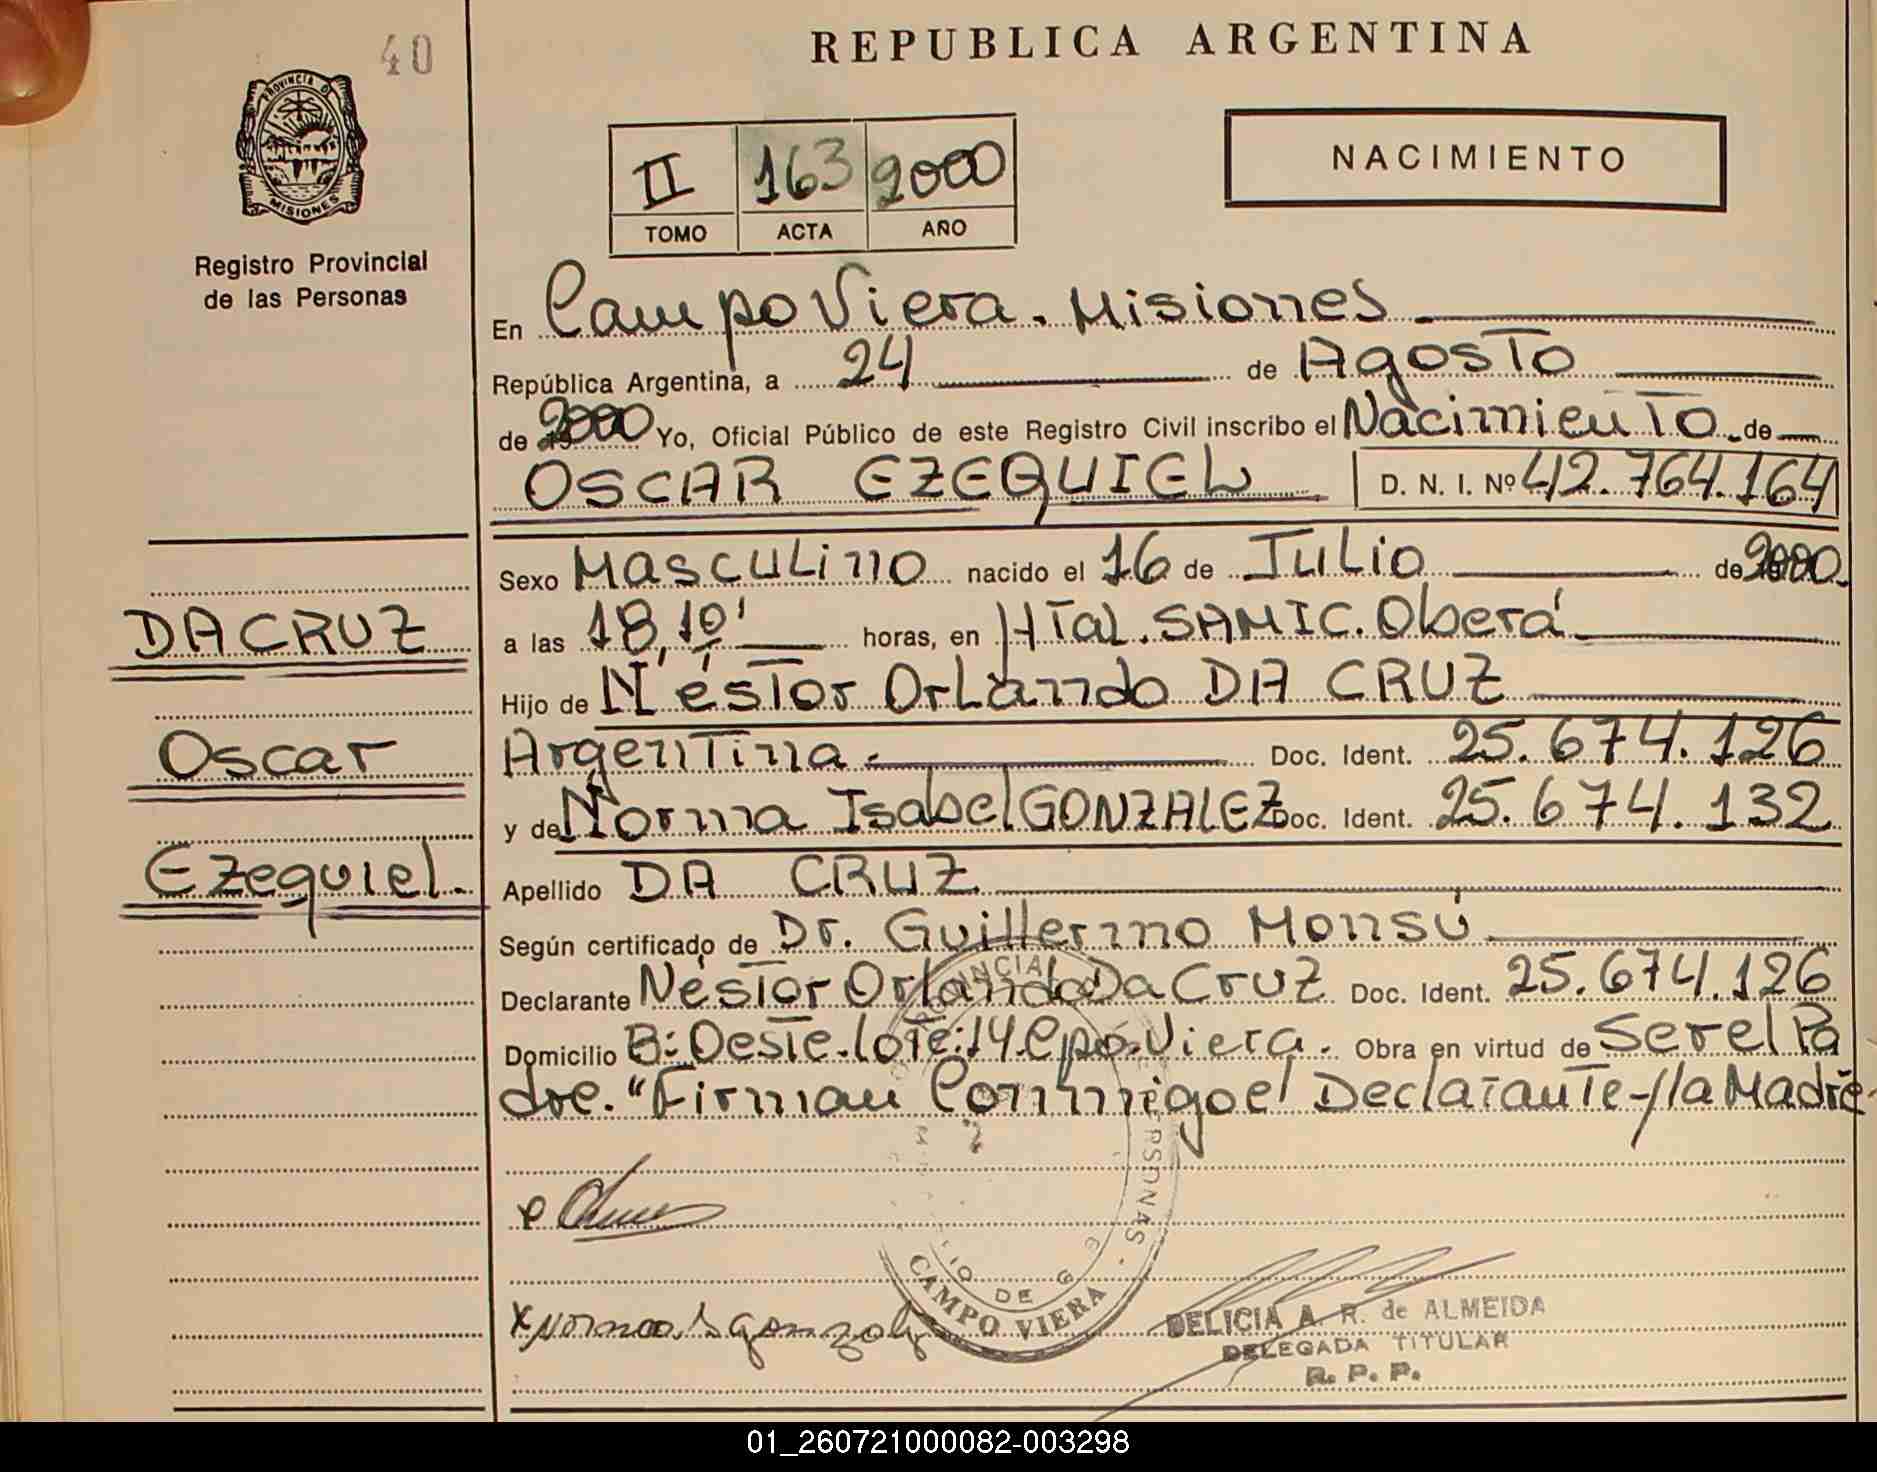 40
REPUBLICA ARGENTINA
PROVINCIA DE
MISIONES
Registro Provincial
de las Personas
II 163 2000
TOMO ACTA AÑO
NACIMIENTO
En Campo Viera. Misiones
República Argentina, a 24 de Agosto
de 2000 Yo, Oficial Público de este Registro Civil inscribo el Nacimiento de
OSCAR EZEQUIEL D. N. I. Nº 42.764.164
Sexo Masculino nacido el 16 de Julio de 2000.
DA CRUZ
a las 18,10' horas, en HTal. SAMIC. Oberá
Hijo de Néstor Orlando DA CRUZ
Oscar
Argentina. Doc. Ident. 25.674.126
y de Norma Isabel GONZALEZ Doc. Ident. 25.674.132
Ezequiel.
Apellido DA CRUZ
Según certificado de Dr. Guillermo Monsú
Declarante Néstor Orlando Da Cruz Doc. Ident. 25.674.126
Domicilio B: Oeste. lote: 14. Cpo. Viera. Obra en virtud de Ser el Pa
dre. "Firman Conmigo el Declarante - y la Madre
PROVINCIA
PERSONAS
CAMPO VIERA
x Norma I gonzalez
DELICIA A. R. de ALMEIDA
DELEGADA TITULAR
R. P. P.
01_260721000082-003298